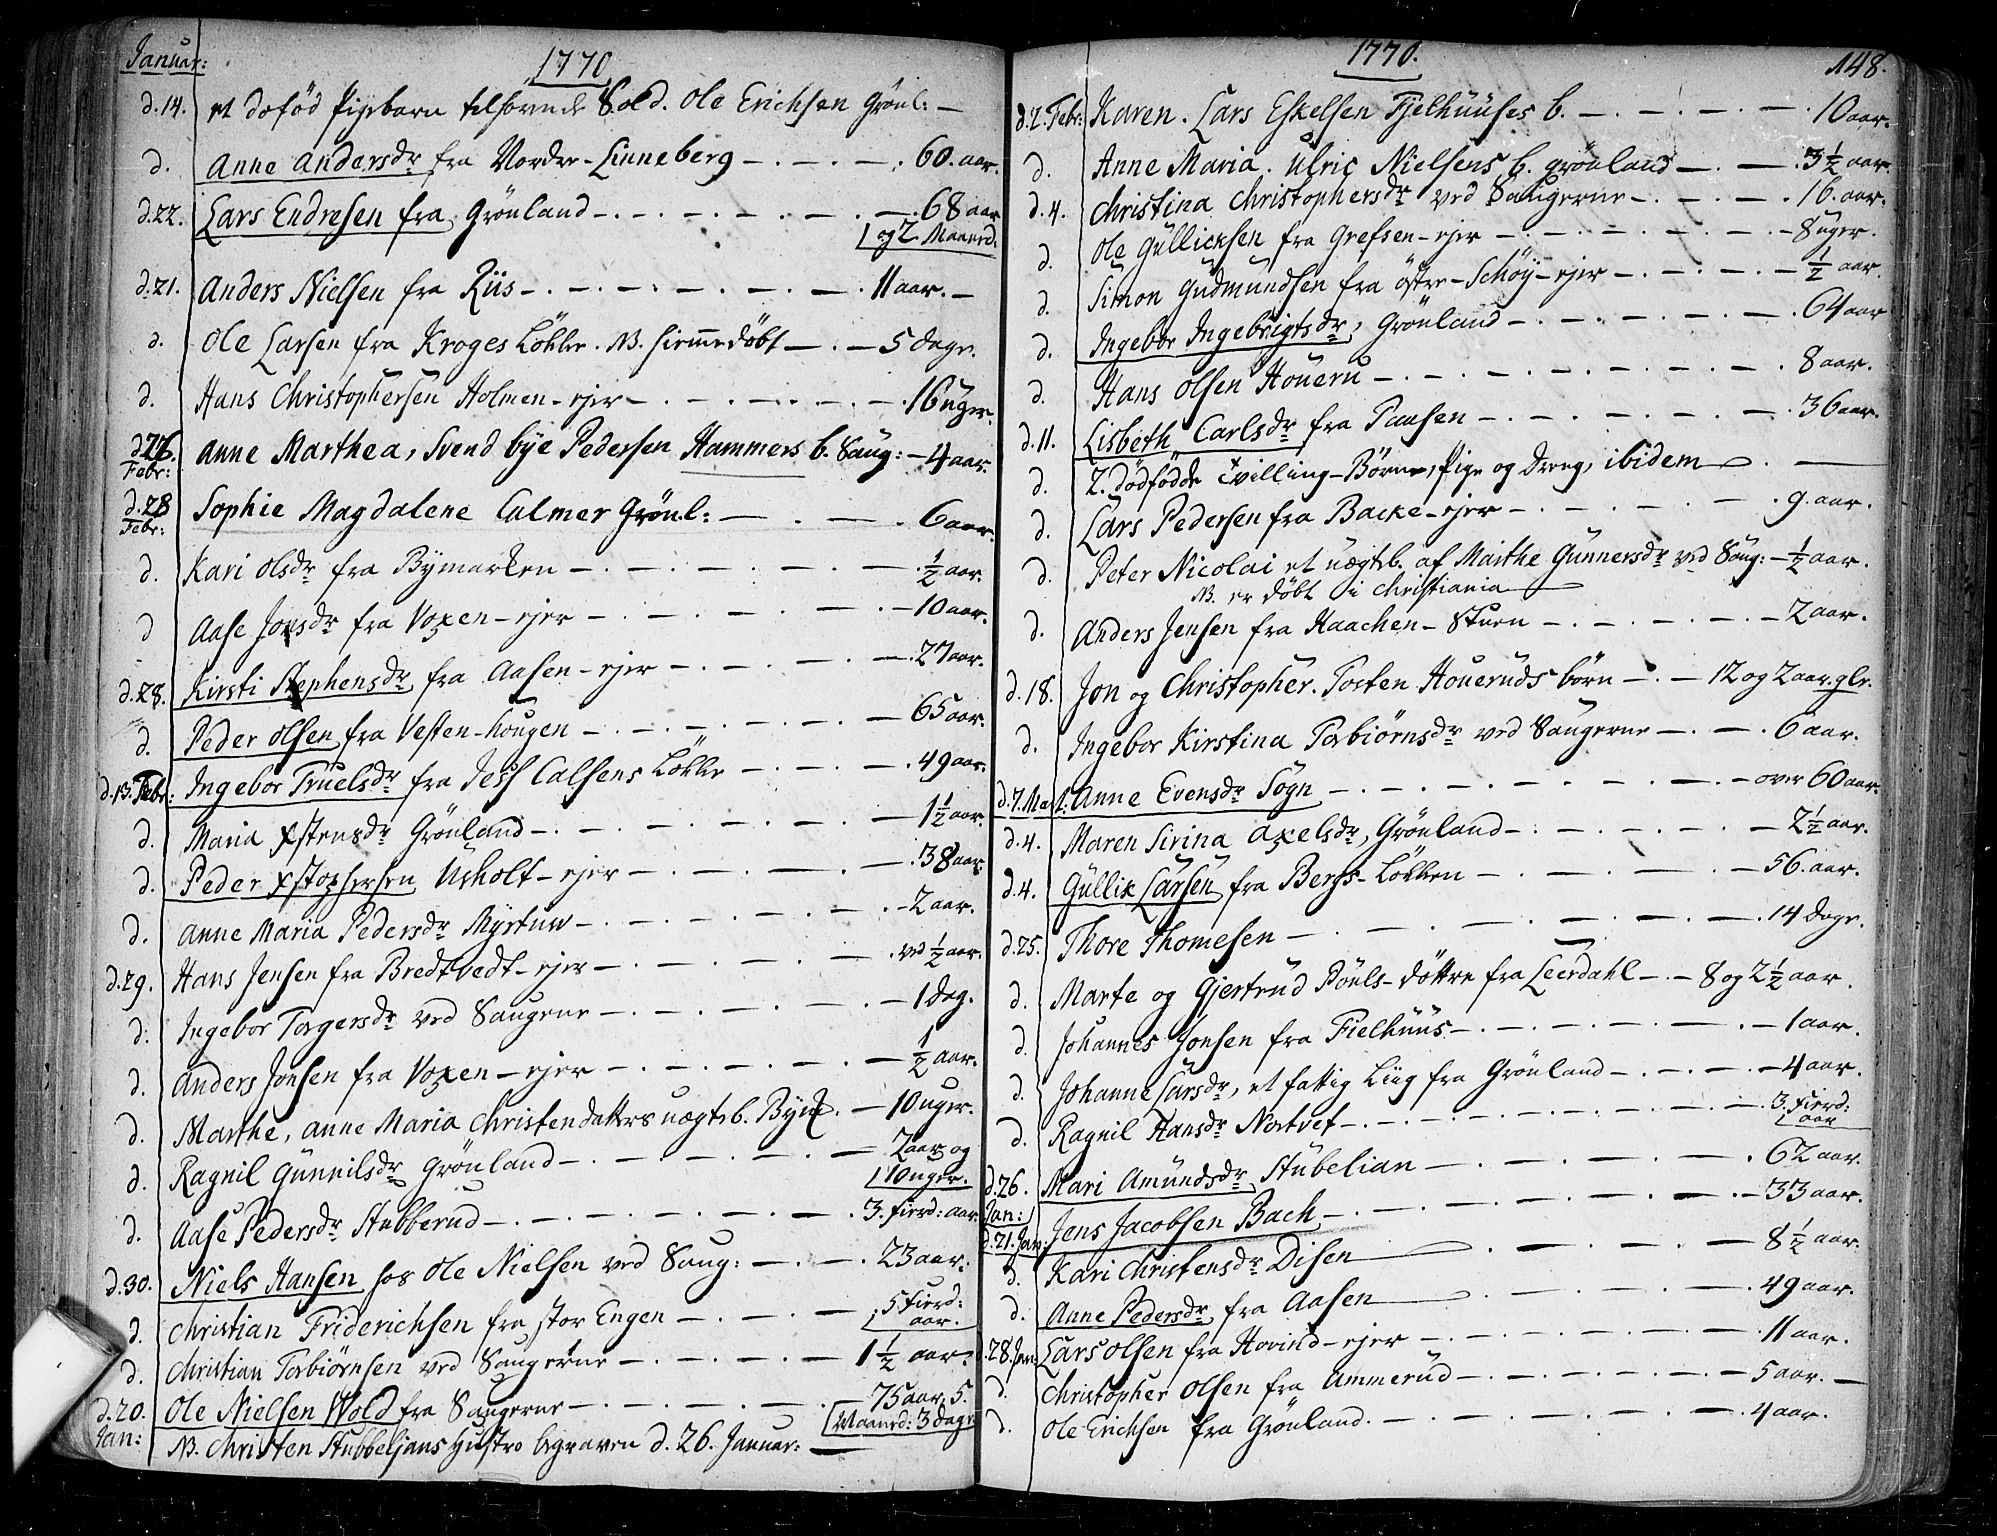 Januar:
1770
d.14. et døfød Pigebarn tilhørende Sold. Ole Erichsen Grönl: —
d. Anne Andersdr fra Nordre-Linneberg — 60. aar.
d.22. Lars Endresen fra Grönland — 68 aar
og 2 Maaned.
d.21. Anders Nielsen fra Riis — 11 aar. —
d. Ole Larsen fra Kroges Lökke. NB. hiemmedöbt — 5 dage.
d. Hans Christophersen Holmen-ejer — 16 uger.
d.26. Febr: Anne Marthea, Svend bye Pedersen Hammers b. Saug: — 4 aar.
d.28 Febr: Sophie Magdalene Calmer Grönl: — 6 aar.
d. Kari Olsdr fra Bymarken — ½ aar.
d Aase Jonsdr fra Voxen-ejer — 10 aar.
d.28. Kirsti Stephensdr fra Aasen-ejer — 27 aar.
d. Peder Olsen fra Vesten-hougen — 65 aar.
d.13. Febr: Ingebor Truelsdr fra Jess Calsens Lökke — 49 aar.
d. Maria Xstensdr Grönland — 1½ aar.
d. Peder Xstophersen Usholt-ejer — 38 aar.
d. Anne Maria Pedersdr Myrtuw — 2 aar.
d.29. Hans Jensen fra Bredtvedt-ejer — ved ½ aar.
d. Ingebor Torgersdr ved Saugene — 1 dag.
d. Anders Jonsen fra Voxen-ejer — ½ aar.
d. Marthe, Anne Maria Christendatters uægteb. Bym. — 10 uger.
d. Ragnil Gunnilsdr Grönland — 2 aar og
10 uger.
d. Aase Pedersdr Stubberud — 3. fierd: aar.
d.30. Niels Hansen hos Ole Nielsen ved Saug: — 23 aar.
d. Christian Friderichsen fra stor Engen — 5 fierd: aar.
d. Christian Torbiörnsen ved Saugerne — 1½ aar.
d.20. Jan: Ole Nielsen Wold fra Saugerne — 75 aar, 5.
Maaned: 3 dage
NB. Christen Stubbeljans Hustro begraven d. 26. Januar: —
1770.
148.
d.2. Febr: Karen. Lars Eskelsen Fjelhuuses b. — 10 aar.
d. Anne Maria. Ulric Nielsens b. Grönland — 3½ aar.
d.4. Christina Christophersdr ved Saugerne — 16. aar.
d. Ole Gullicksen fra Grefsen-ejer — 8 uger.
d. Simon Gudmundsen fra östre-Schöy-ejer — ½ aar.
d. Ingebor Ingebrigtsdr, Grönland — 64 aar
d. Hans Olsen Houeru — 8 aar.
d.11. Lisbeth Carlsdr fra Pausen — 36 aar.
d. 2. dödfödde Tvilling-Börne, Pige og Dreng, ibidem —
d. Lars Pedersen fra Backe-ejer — 9. aar.
d. Peter Nicolai et uægteb. af Marthe Gunnersdr ved Saug: — ½ aar.
NB. er döbt i Christiania
d. Anders Jensen fra Haachen-Stuen — 2 aar.
d.18. Jon og Christopher. Torsten Houeruds börn — 12 og 2 aar. glr.
d. Ingebor Kirstina Torbiörnsdr ved Saugerne — 6 aar.
d.7. Mart: Anne Evensdr Sogn — over 60 aar.
d.4. Maren Sirina Axelsdr, Grönland — 2½ aar.
d.4. Gullik Larsen fra Bergs-Lökken — 56. aar.
d.25. Thore Thomesen — 14 dage.
d. Marte og Gjertrud Pöuls-döttre fra Leerdahl — 8 og 2½ aar.
d. Johannes Jonsen fra Fielhuus — 1 aar.
d. Johanne Larsdr, et fattig Liig fra Grönland — 4 aar.
d. Ragnil Hansdr Nortvet — 3. fierd: aar
d.26. Jan: Mari Amundsdr Stubelian — 62 aar.
Jens Jacobsen Bach — 33 aar.
d.21. Jan: Kari Christensdr Disen — 8½ aar.
d. Anne Pedersdr fra Aasen — 49 aar.
28. Jan: Lars Olsen fra Hovind-ejer — 11 aar.
d. Christopher Olsen fra Ammerud — 5 aar. —
d. Ole Erichsen fra Grönland. — 4 aar.